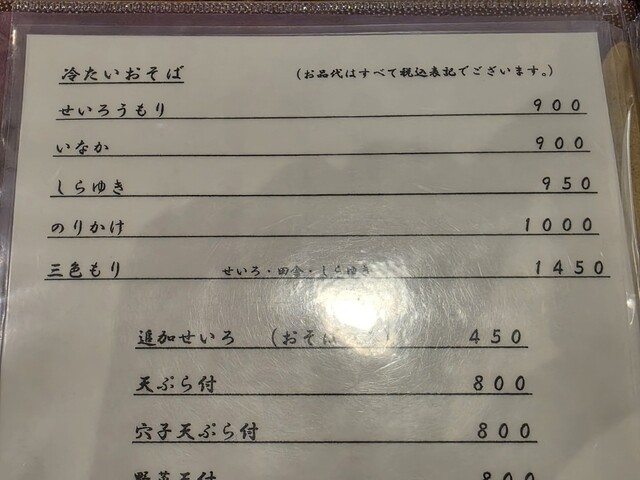 冷たいおそば (お品代はすべて税込表記でございます。)
せいろうもり 900
いなか 900
しらゆき 950
のりかけ 1000
三色もり せいろ・田舎・しらゆき 1450
追加せいろ (おそば 450
天ぷら付 800
穴子天ぷら付 800
野菜天付 800